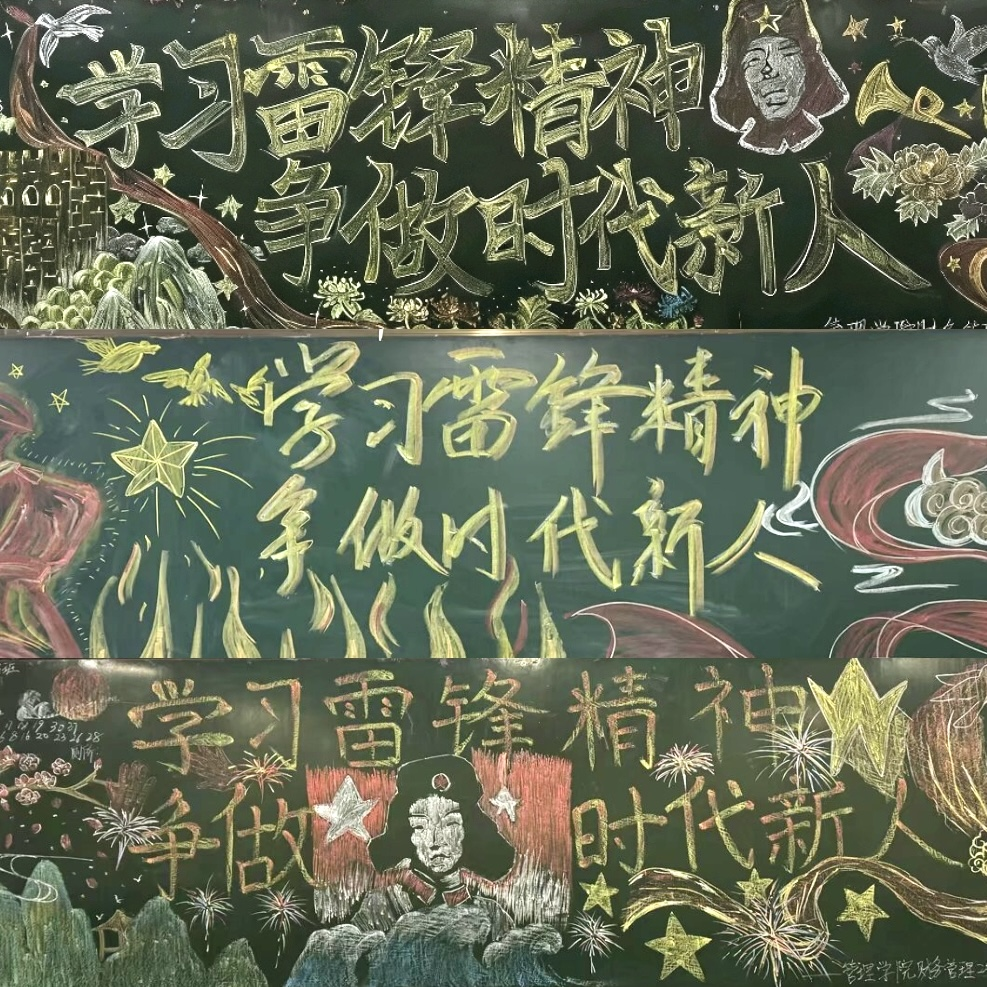 学习雷锋精神
争做时代新人
学习雷锋精神
争做时代新人
学习雷锋精神
争做时代新人
管理学院财务管理